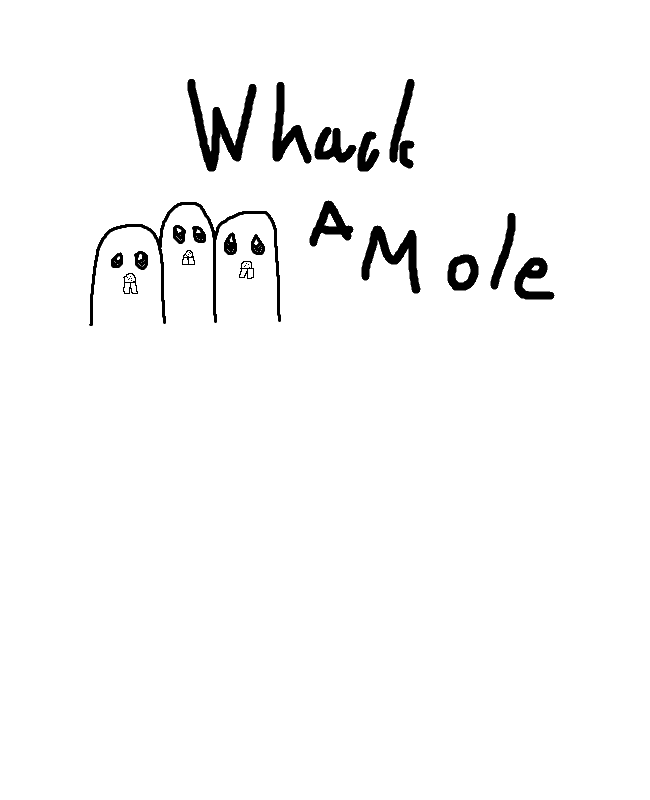 Whack
A Mole